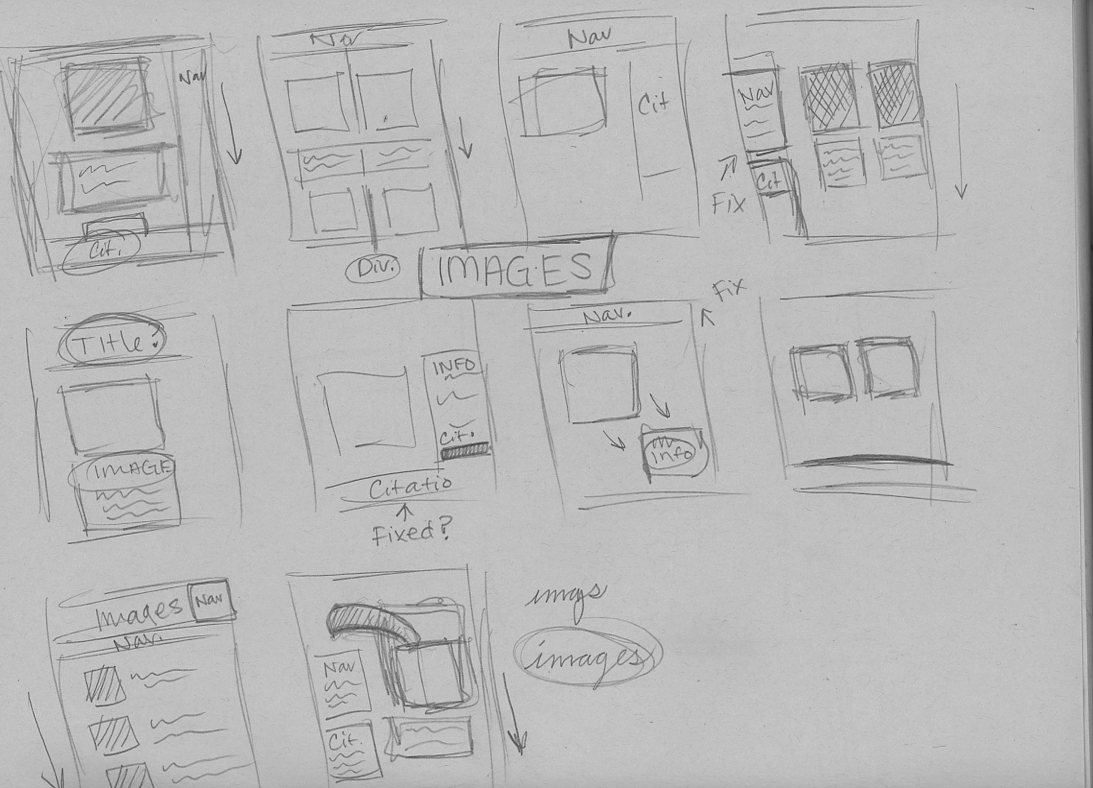 Nav
Cit.
Nav
Div.
Nav
Cit
Nav
Cit
Fix
IMAGES
Title?
IMAGE
INFO
Cit.
Citatio
Fixed?
Nav.
Fix
info
Images
Nav
Nav.
Nav
Cit.
imgs
images